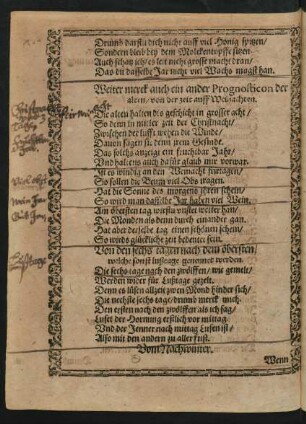 Drumb darffu dich nicht auff viel Honig spitzen/
Sondern bleib bey dem Molckentopffe sitzen
Auch schaw jetzt es leit nicht grosse macht dran/
Das du dasselbe Jar nicht viel Wachs magst han.
Weiter merck auch ein ander Prognosticon der
alten/ von der zeit auff Weinachten.
Die alten halten die geschicht in grosser acht/
So denn in mitler zeit der Christnacht/
Zwischen der lufft wehen die Winde/
Dauon sagen sie denn jrem Gesinde.
Das solchs anzeige ein fruchtbar Jahr/
Und halten auch dafür glaub mir vorwar.
Ist es windig an den Weinacht feiertagen/
So sollen die Beum viel Obs tragen.
Hat die Sonne des morgens jhren schein/
So wird man dasselbe Jar haben viel Wein.
Am obersten tag wirstu weiter han/
Die Monden also denn durch einander gan.
Hat aber derselbe tag einen schönen schein/
So wirds glückliche zeit bedeuten sein.
Von den sechs tagen nach dem öbersten,
welche sonst lustage genennet werden.
Die sechs tage nach den zwölffen/ wie gemelt/
Werden wider für Lustage gezelt.
Denn es lösen allzeit zwen Mond hinder sich/
Die nechste sechs tage/ drumb merck mich.
Den ersten nach den zwölffen als ich sag/
Luset der Hornung erstlich vor mittag.
Und der Jenner nach mittag Lusen ist/
Also mit den andern zu aller frist.
Vom Nachwinter.
Wenn